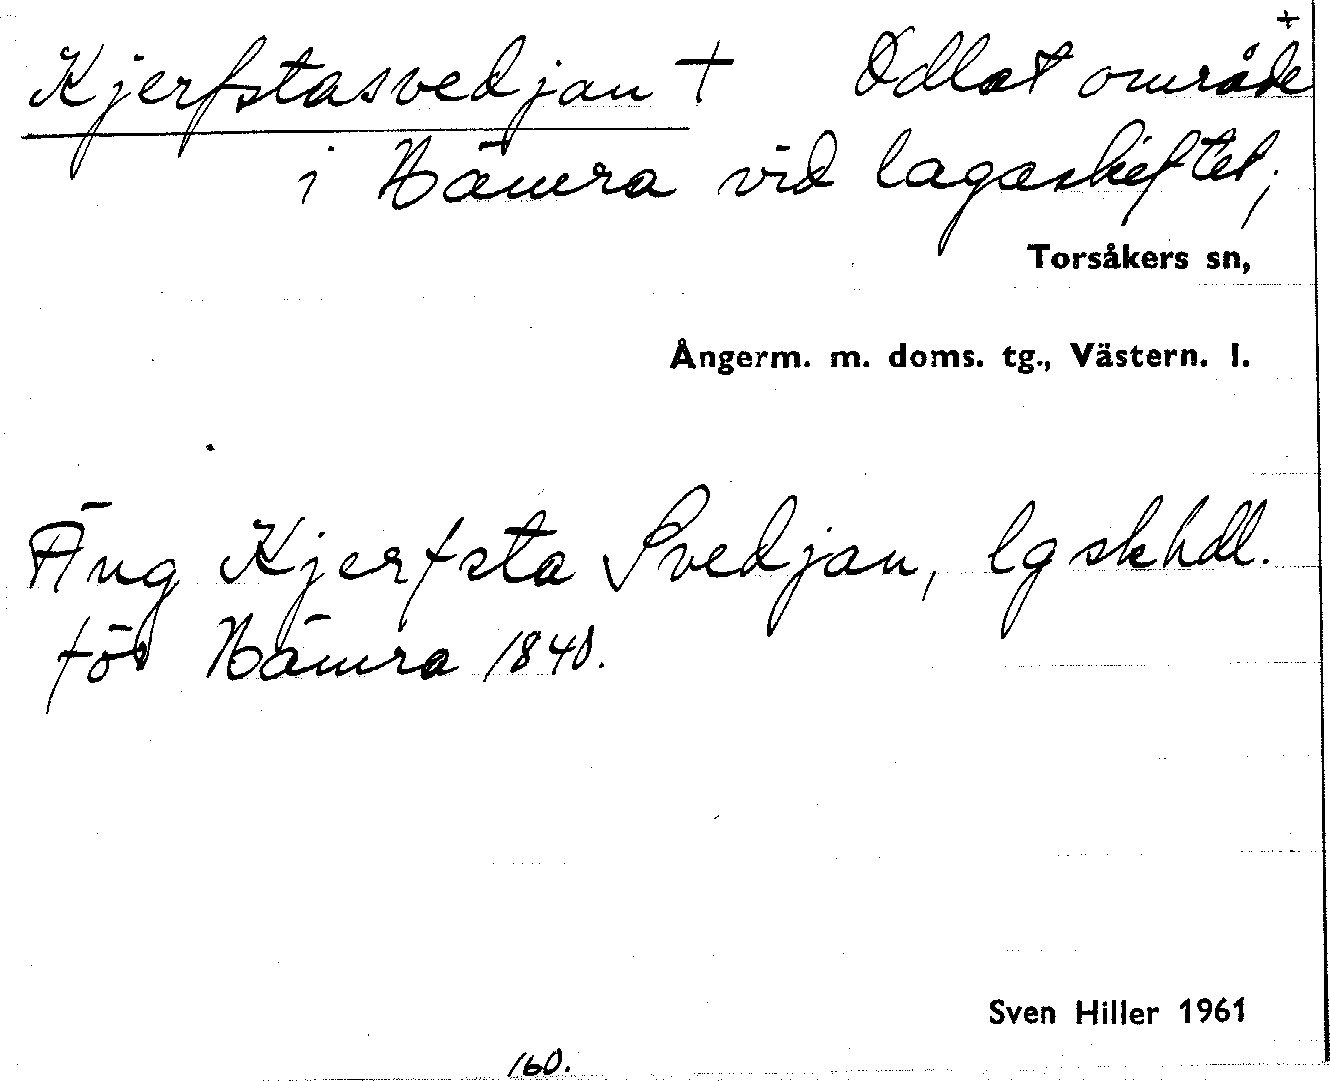 +
Kjerfstasvedjan + Odlat område
i Hämra vid lagaskiftet;
Torsåkers sn,
Ångerm. m. doms. tg., Västern. l.
Äng Kjerfsta Svedjan, lgskhdl.
för Hämra 1840.
Sven Hiller 1961
160.